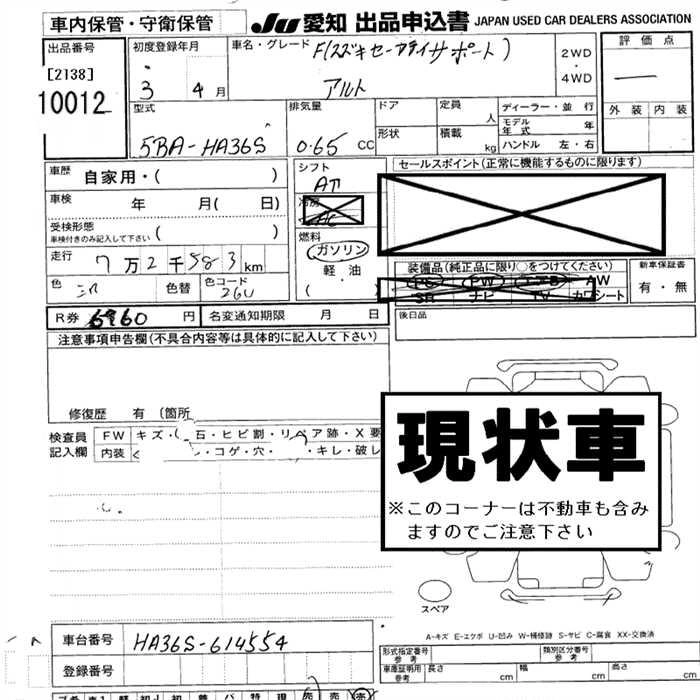 車内保管・守衛保管
JU 愛知 出品申込書 JAPAN USED CAR DEALERS ASSOCIATION
出品番号
[2138]
10012
初度登録年月
3 年 4 月
車名・グレード F(スズキセーフティサポート)
アルト
2WD
・
4WD
評価点
外装 内装
型式
5BA-HA36S
排気量
0.65 CC
ドア
形状
定員 人
積載 kg
ディーラー・並行
モデル年式 年
ハンドル 左・右
車歴
自家用・( )
車検 年 月( 日)
受検形態
車検付きのみ記入して下さい ( )
走行 7万2千583km
色 色替 色コード
26U
シフト
AT
冷房
AC
燃料
ガソリン
軽・油
( )
セールスポイント(正常に機能するものに限ります)
装備品(純正品に限り○をつけてください)
PS PW エアB AW
SR ナビ TV カワシート
新車保証書
有・無
R券 6960 円
名変通知期限 月 日
後日品
注意事項申告欄(不具合内容等は具体的に記入して下さい)
修復歴 有 (箇所
検査員
記入欄
FW キズ・ 石・ヒビ割・リペア跡・X要
内装 ・コゲ・穴・ ・キレ・破レ
現状車
※このコーナーは不動車も含み
ますのでご注意下さい
スペア
A-キズ E-エクボ U-凹み W-補修跡 S-サビ C-腐食 XX-交換済
車台番号 HA36S-614554
登録番号
型式指定番号
参考
類別区分番号
参考
車庫証明用
参考
長さ cm 幅 cm 高さ cm